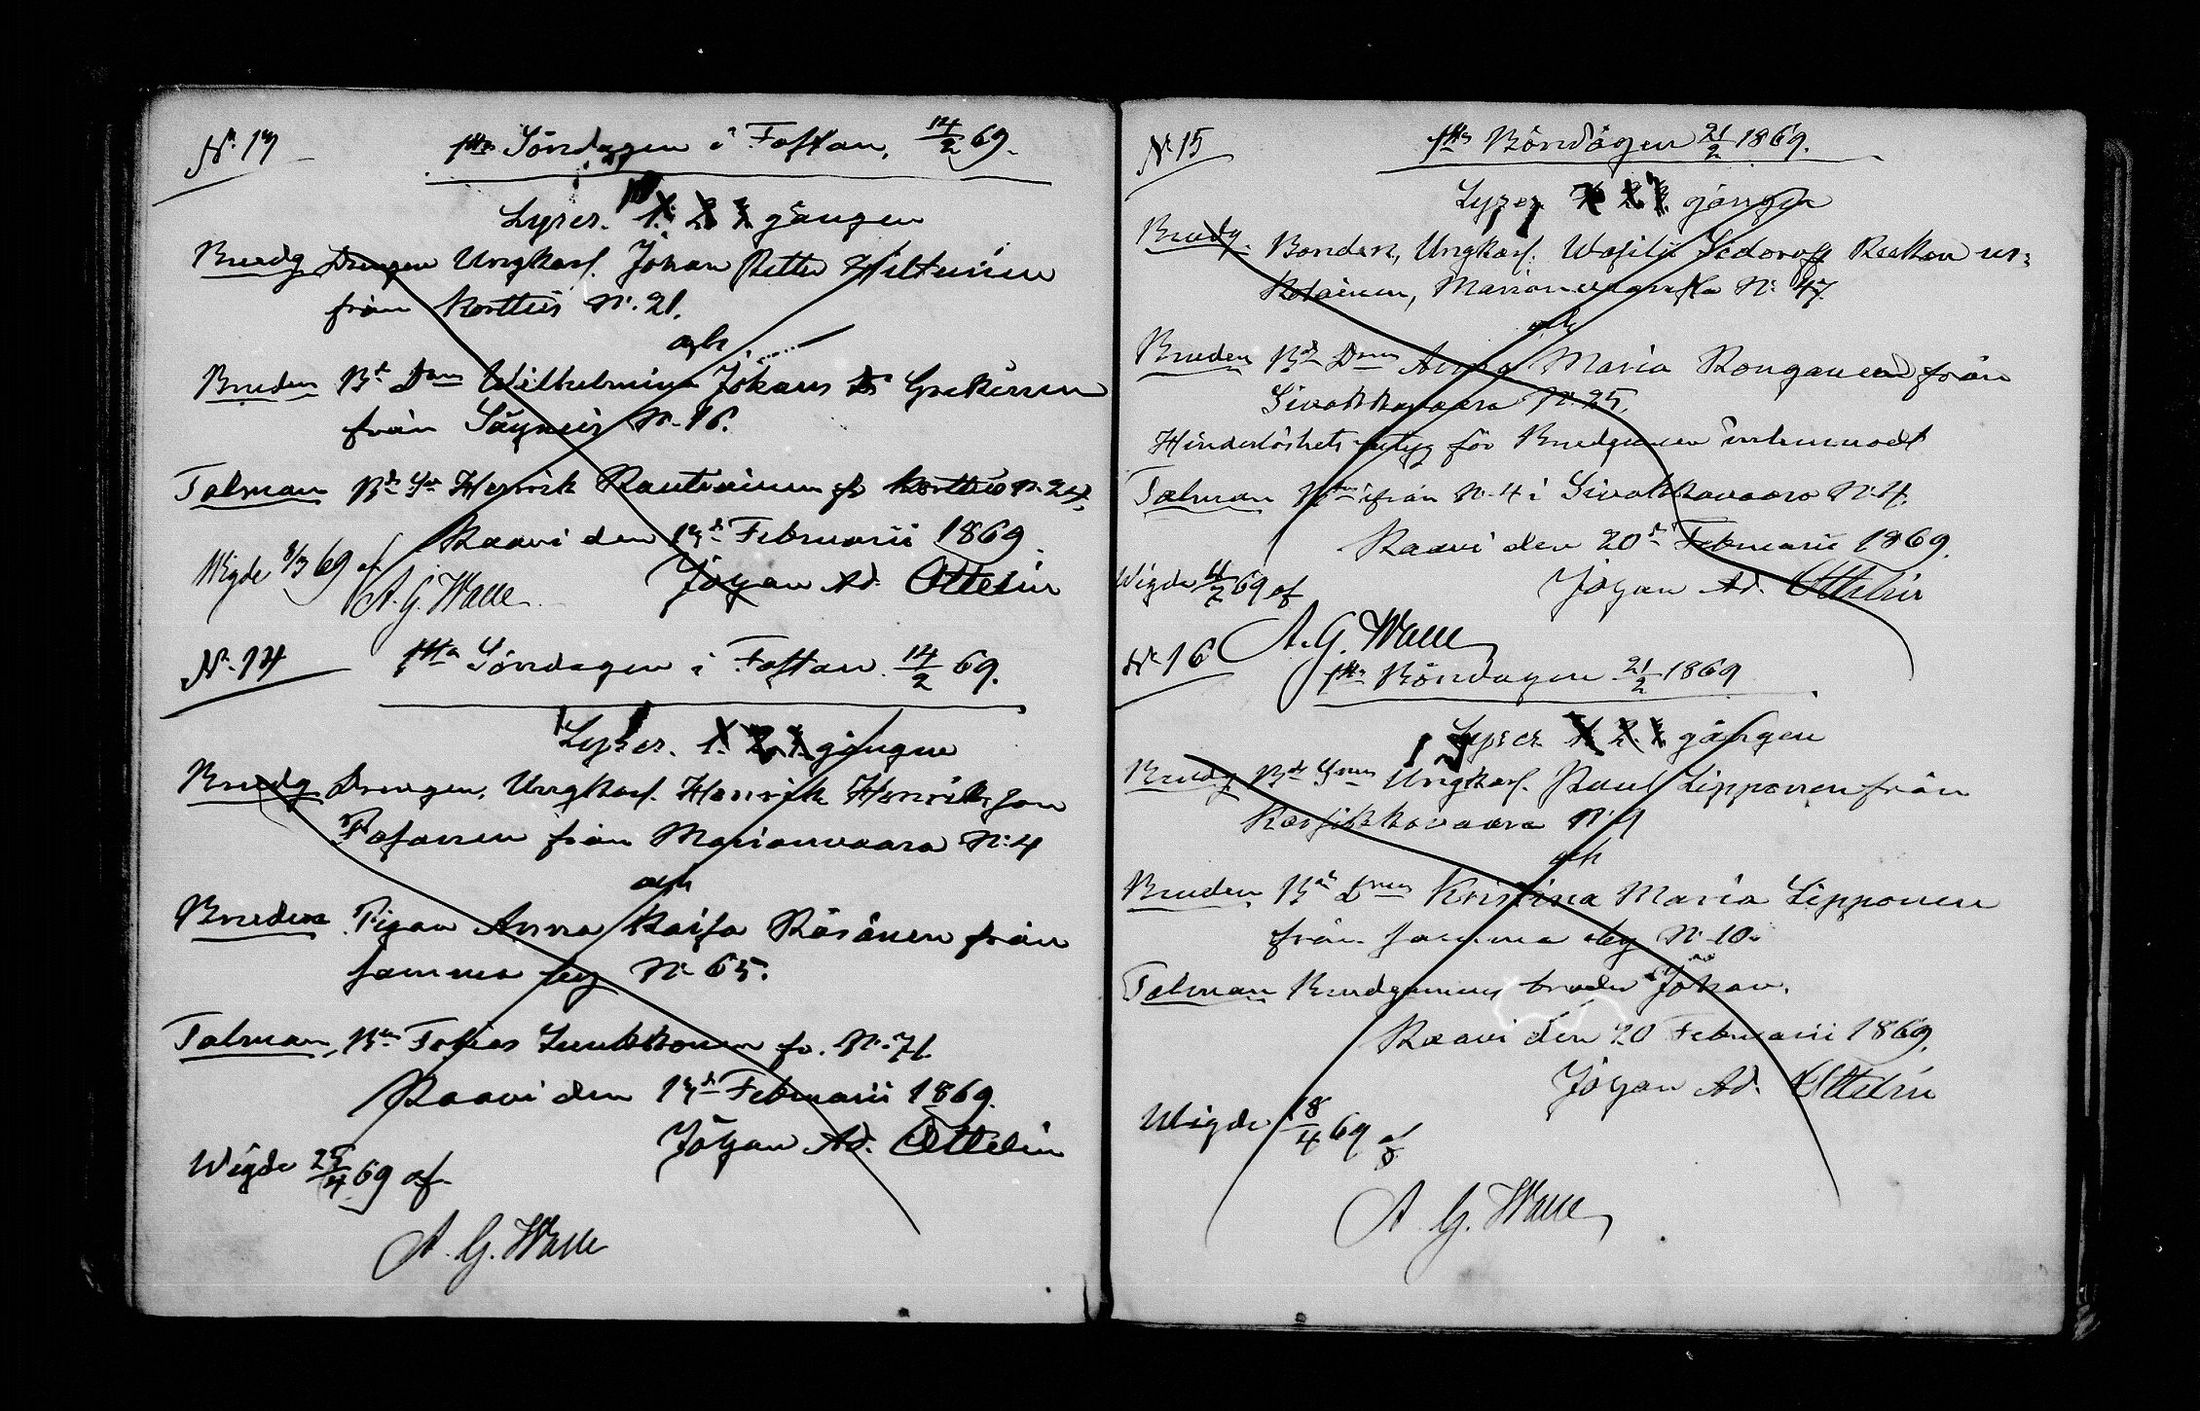 N:o 13
1sta Söndagen i Fastan, 14/2 69.
Lyses. 1. 2 3 gången
Brudg Drengen Ungkarl. Johan Petter Hiltunen
från Kortteis N:o 21.
och
Bruden Bd Dom Wilhelmina Johans Dr
från Säyneis N:o 16.
Talman Bd Sn Henrik Rautiainen fr Kortteis N:o 24.
Kaavi den 13d Februarii 1869.
Johan Ad. Ottelin
Wigde 8/3 69 af
A. G. Walle
N:o 14
1sta Söndagen i Fastan 14/2 69.
Lyses. 1. 2. 3. gången
Brudg Drengen, Ungkarl. Henrik Henriksson
från Marianvaara N:o 4
och
Bruden Pigan Anna Kaisa Räsänen från
samma by N:o 65.
Talman, Bn Tobias fr. N:o 71
Kaavi den 13d Februarii 1869.
Johan Ad. Ottelin
Wigde 25/4 69 af
A. G. Walle
N:o 15
1sta Böndagen 21/2 1869.
Lyses 1 2 3 gången
Brudg. Bonden, Ungkarl. Wasilii Sidoroff
Marianvaara N:o 47
och
Bruden Bd Dom Anna Maria Rongainen från
Sivakkavaara N:o 25.
Hinderlöshets betyg för Brudgummen inlemnadt
Talman från N:o 4 i Sivakkavaara N:o 4.
Kaavi den 20d Februarii 1869.
Johan Ad. Ottelin
Wigde 69 af
A. G. Walle
N:o 16
1sta Böndagen 21/2 1869
Lyses 1 2 3 gången
Brudg Bd Son Ungkarl. Paul Lipponen från
Karsikkovaara N:o 9
och
Bruden Bd Dom Kristina Maria Lipponen
från samma by N:o 10.
Talman Brudgummens broder Johan.
Kaavi den 20 Februarii 1869.
Johan Ad. Ottelin
Wigde 18/4 69 af
A. G. Walle